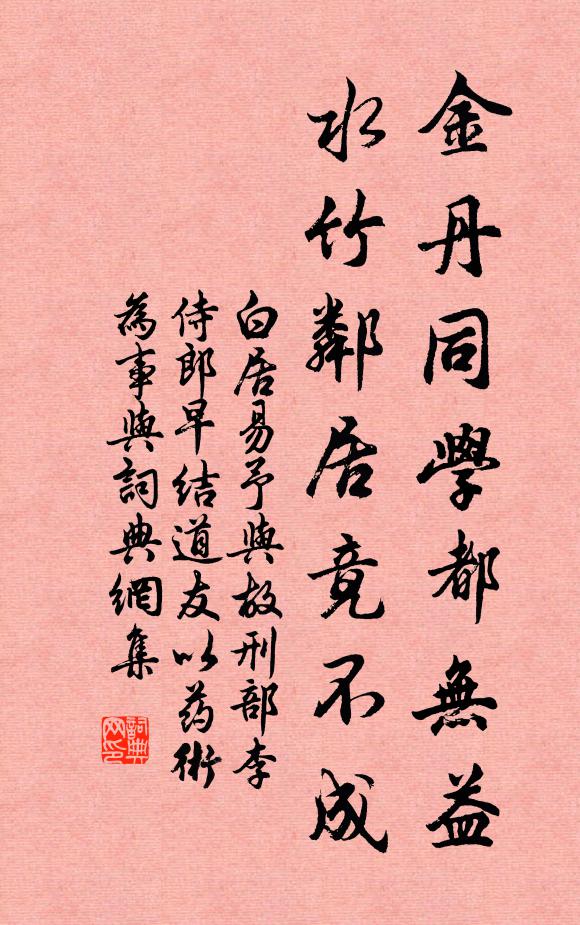 金丹同學都無益
水竹鄰居竟不成
白居易予與故刑部李
侍郎早结道友以药術
為事與詞典網集
詞典
网印